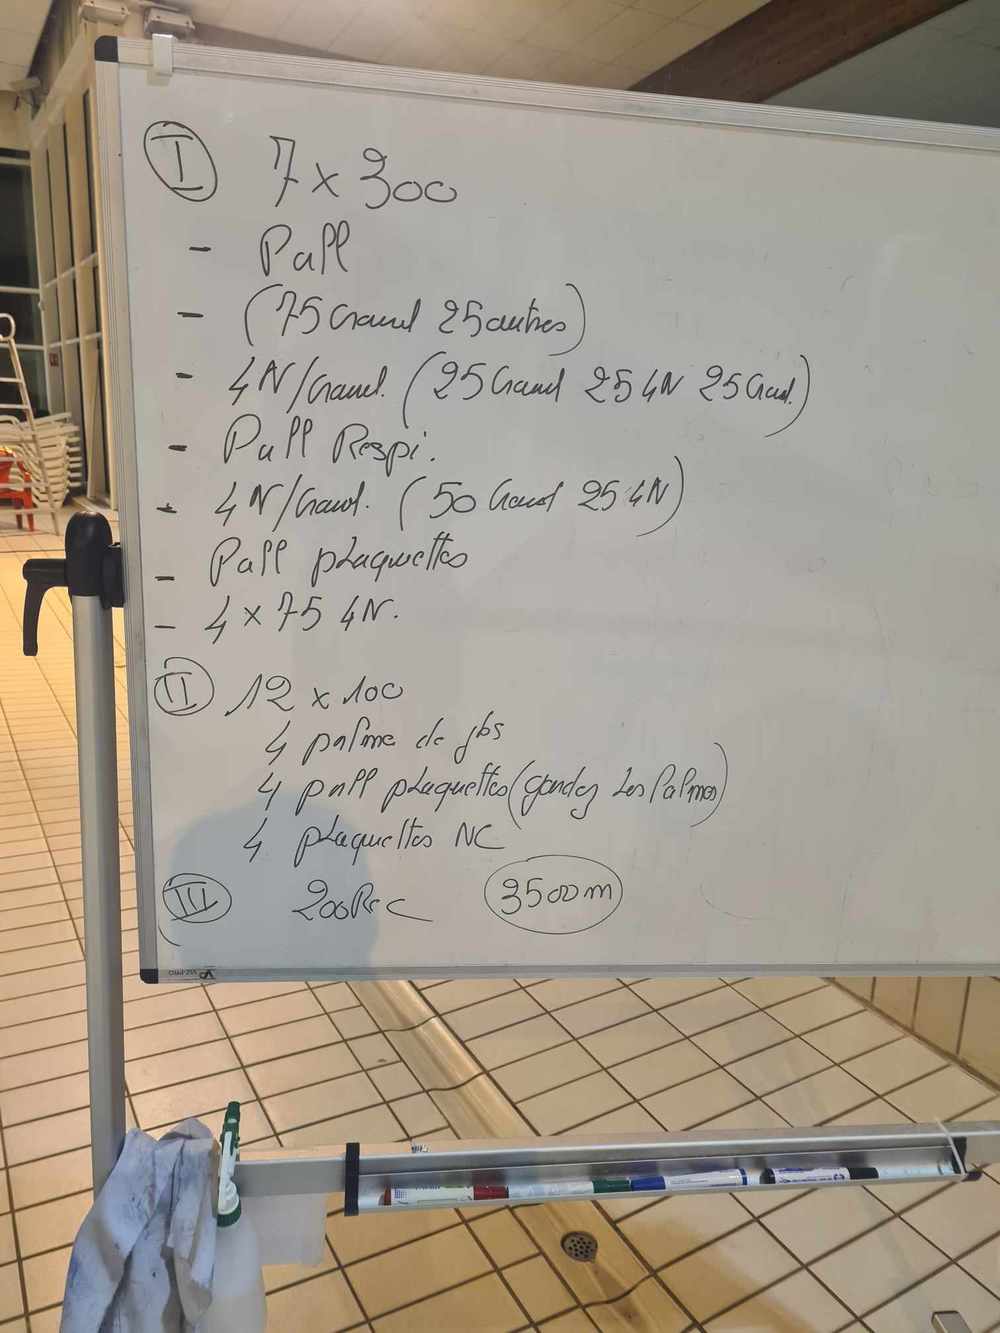 I 7 x 300
- Pull
- (75 Crawl 25 autres)
- 4N/Crawl. (25 Crawl 25 4N 25 Crawl.)
- Pull Respi.
- 4N/Crawl. (50 Crawl 25 4N)
- Pull plaquettes
- 4 x 75 4N.
II 12 x 100
4 palme de
4 pull plaquettes (gardez les Palmes)
4 plaquettes NC
III 200 Rec 3500m